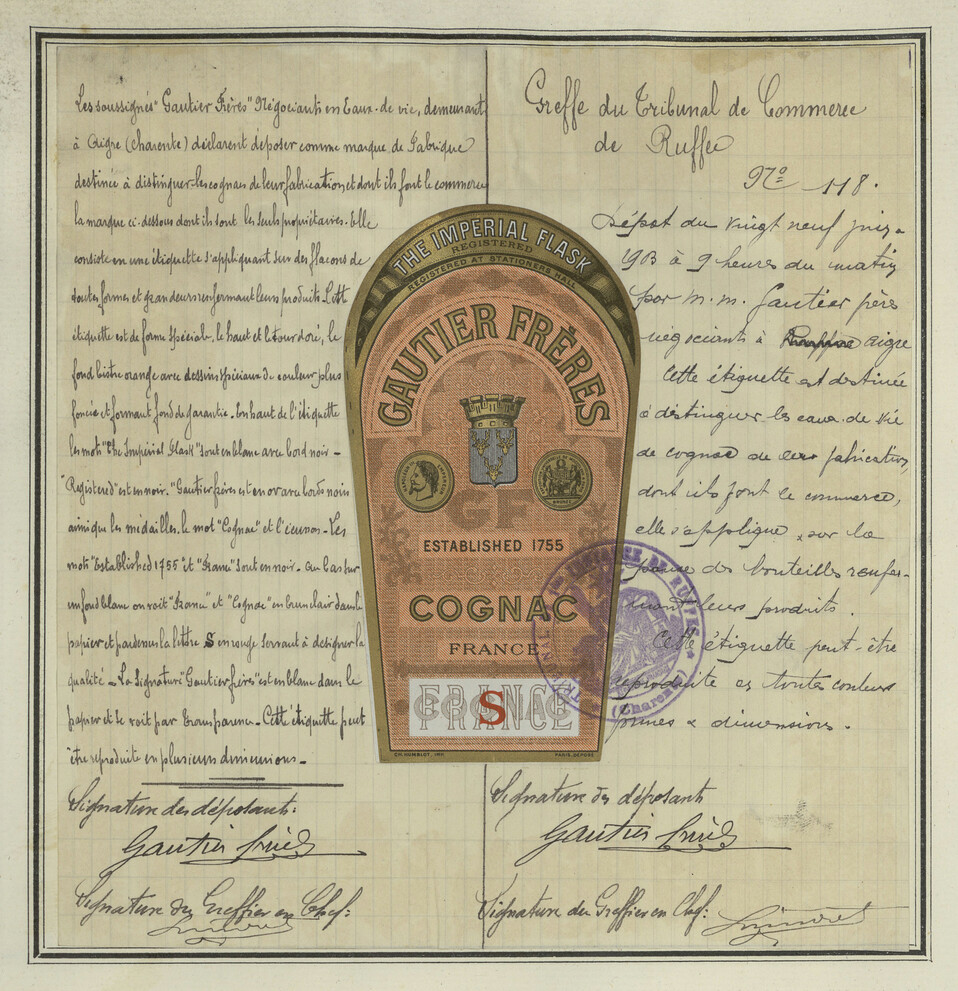 Les soussignés "Gautier Frères" Négociants en Eaux-de-vie, demeurant
à Aigre (Charente) déclarent déposer comme marque de Fabrique
destinée à distinguer les cognacs de leur fabrication et dont ils font le commerce
la marque ci-dessous dont ils sont les seuls propriétaires. Elle
consiste en une étiquette s'appliquant sur des flacons de
toutes formes et grandeurs renfermant leurs produits. Cette
étiquette est de forme spéciale, le haut et le tour doré, le
fond bistre orange avec dessins spéciaux de couleur plus
foncée et formant fond de garantie. En haut de l'étiquette
les mots "The Impérial Flask" sont en blanc avec bord noir -
"Registered" est en noir. "Gautier frères est en or avec bords noirs
ainsi que les médailles, le mot "Cognac" et l'écusson. Les
mots "Established 1755" et "France" sont en noir. Au bas sur
un fond blanc on voit "France" et "Cognac" en brun clair dans le
papier et par dessus la lettre S en rouge servant à désigner la
qualité. La Signature "Gautier frères" est en blanc dans le
papier et se voit par transparence. Cette étiquette peut
être reproduite en plusieurs dimensions.
Signature des déposants:
Gautier frères
Signature du Greffier en Chef:
Greffe du Tribunal de Commerce
de Ruffec
N° 118.
Dépôt du vingt neuf juin
1903 à 9 heures du matin
par m.m. Gautier frères
négociants à aigre
Cette étiquette est destinée
à distinguer les eaux-de-vie
de cognac de leur fabrication,
dont ils font le commerce,
elle s'applique sur la
panse des bouteilles renfer-
mant leurs produits.
Cette étiquette peut-être
reproduite en toutes couleurs
formes & dimensions.
Signature des déposants
Gautier frères
Signature du Greffier en Chef:
THE IMPERIAL FLASK
REGISTERED
REGISTERED AT STATIONERS HALL
GAUTIER FRÈRES
GF
ESTABLISHED 1755
COGNAC
FRANCE
FRANCE
S
CH. HUMBLOT, IMP.
PARIS. DEPOSÉ
(Charente)